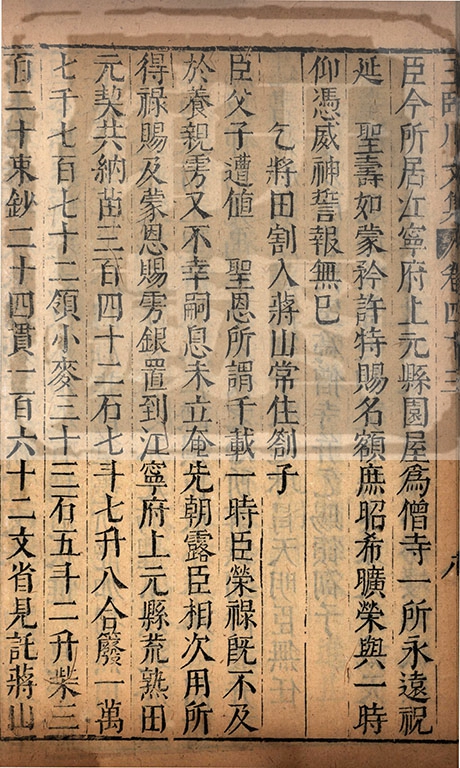 王臨川文集 卷四十三 八
臣今所居江寧府上元縣園屋爲僧寺一所永遠祝
延　聖壽如蒙矜許特賜名額庶昭希曠榮與一時
仰憑威神誓報無已
乞將田割入蔣山常住劄子
臣父子遭値　聖恩所謂千載一時臣榮祿旣不及
於養親雱又不幸嗣息未立奄先朝露臣相次用所
得祿賜及蒙恩賜雱銀置到江寧府上元縣荒熟田
元契共納苗三百四十二石七斗七升八合䉬一萬
七千七百七十二領小麥三十三石五斗二升柴三
百二十束鈔二十四貫一百六十二文省見託蔣山